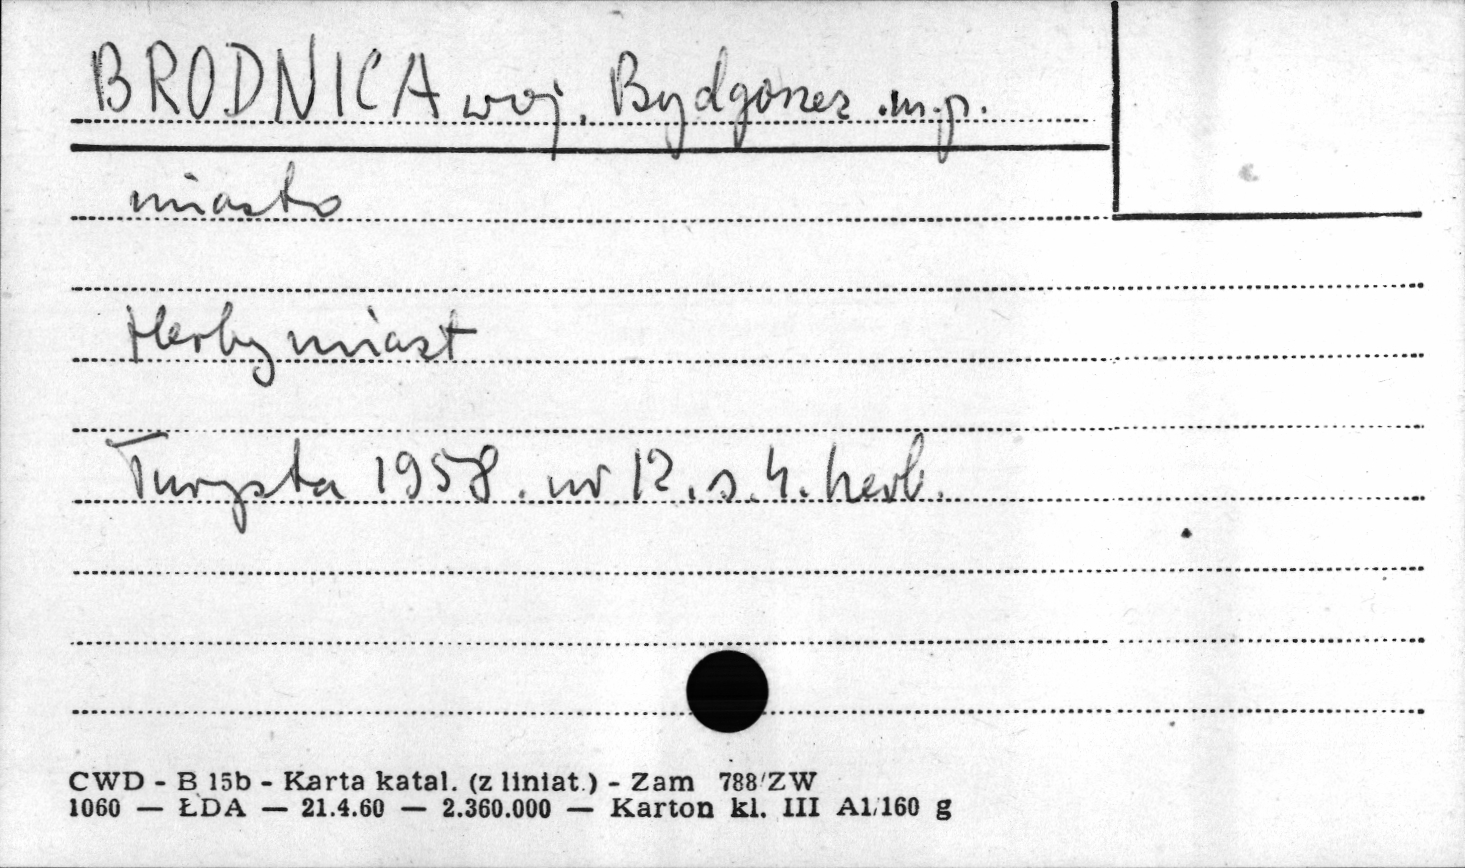 BRODNICA woj. Bydgoszcz m.p.
miasto
Herby miast
Turysta 1958. nr 12. s. 4. herb.
CWD - B 15b - Karta katal. (z liniat.) - Zam 788/ZW
1060 — ŁDA — 21.4.60 — 2.360.000 — Karton kl. III A1/160 g